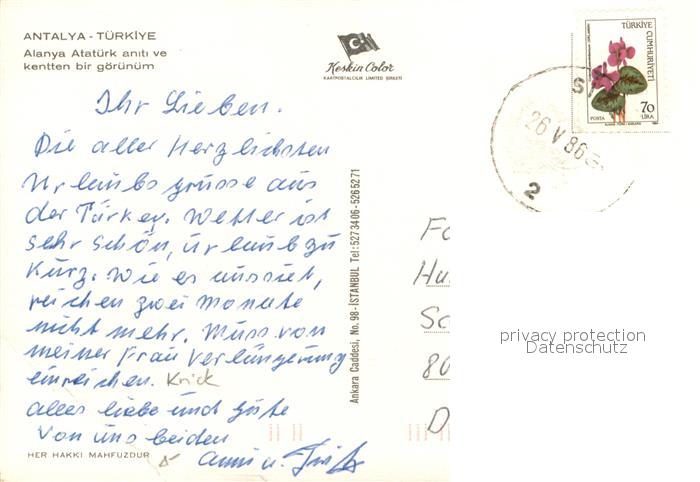 ANTALYA - TÜRKİYE
Alanya Atatürk anıtı ve
kentten bir görünüm
Keskin Color
KARTPOSTALCILIK LIMITED ŞİRKETİ
Ihr Lieben.
Die aller Herzlichsten
Urlaubsgrüsse aus
der Türkey. Wetter ist
sehr schön, Urlaub zu
kurz. Wie es aussieht,
reichen zwei Monate
nicht mehr. Muss von
meiner Frau Verlängerung
einreichen.
alles liebe und gute
von uns beiden
u.
HER HAKKI MAHFUZDUR
Ankara Caddesi, No. 98-İSTANBUL Tel: 5273406-5265271
TÜRKİYE
CUMHURİYETİ
70
LİRA
POSTA
S
26 V 86
2
Hu
Sc
80
D
privacy protection
Datenschutz